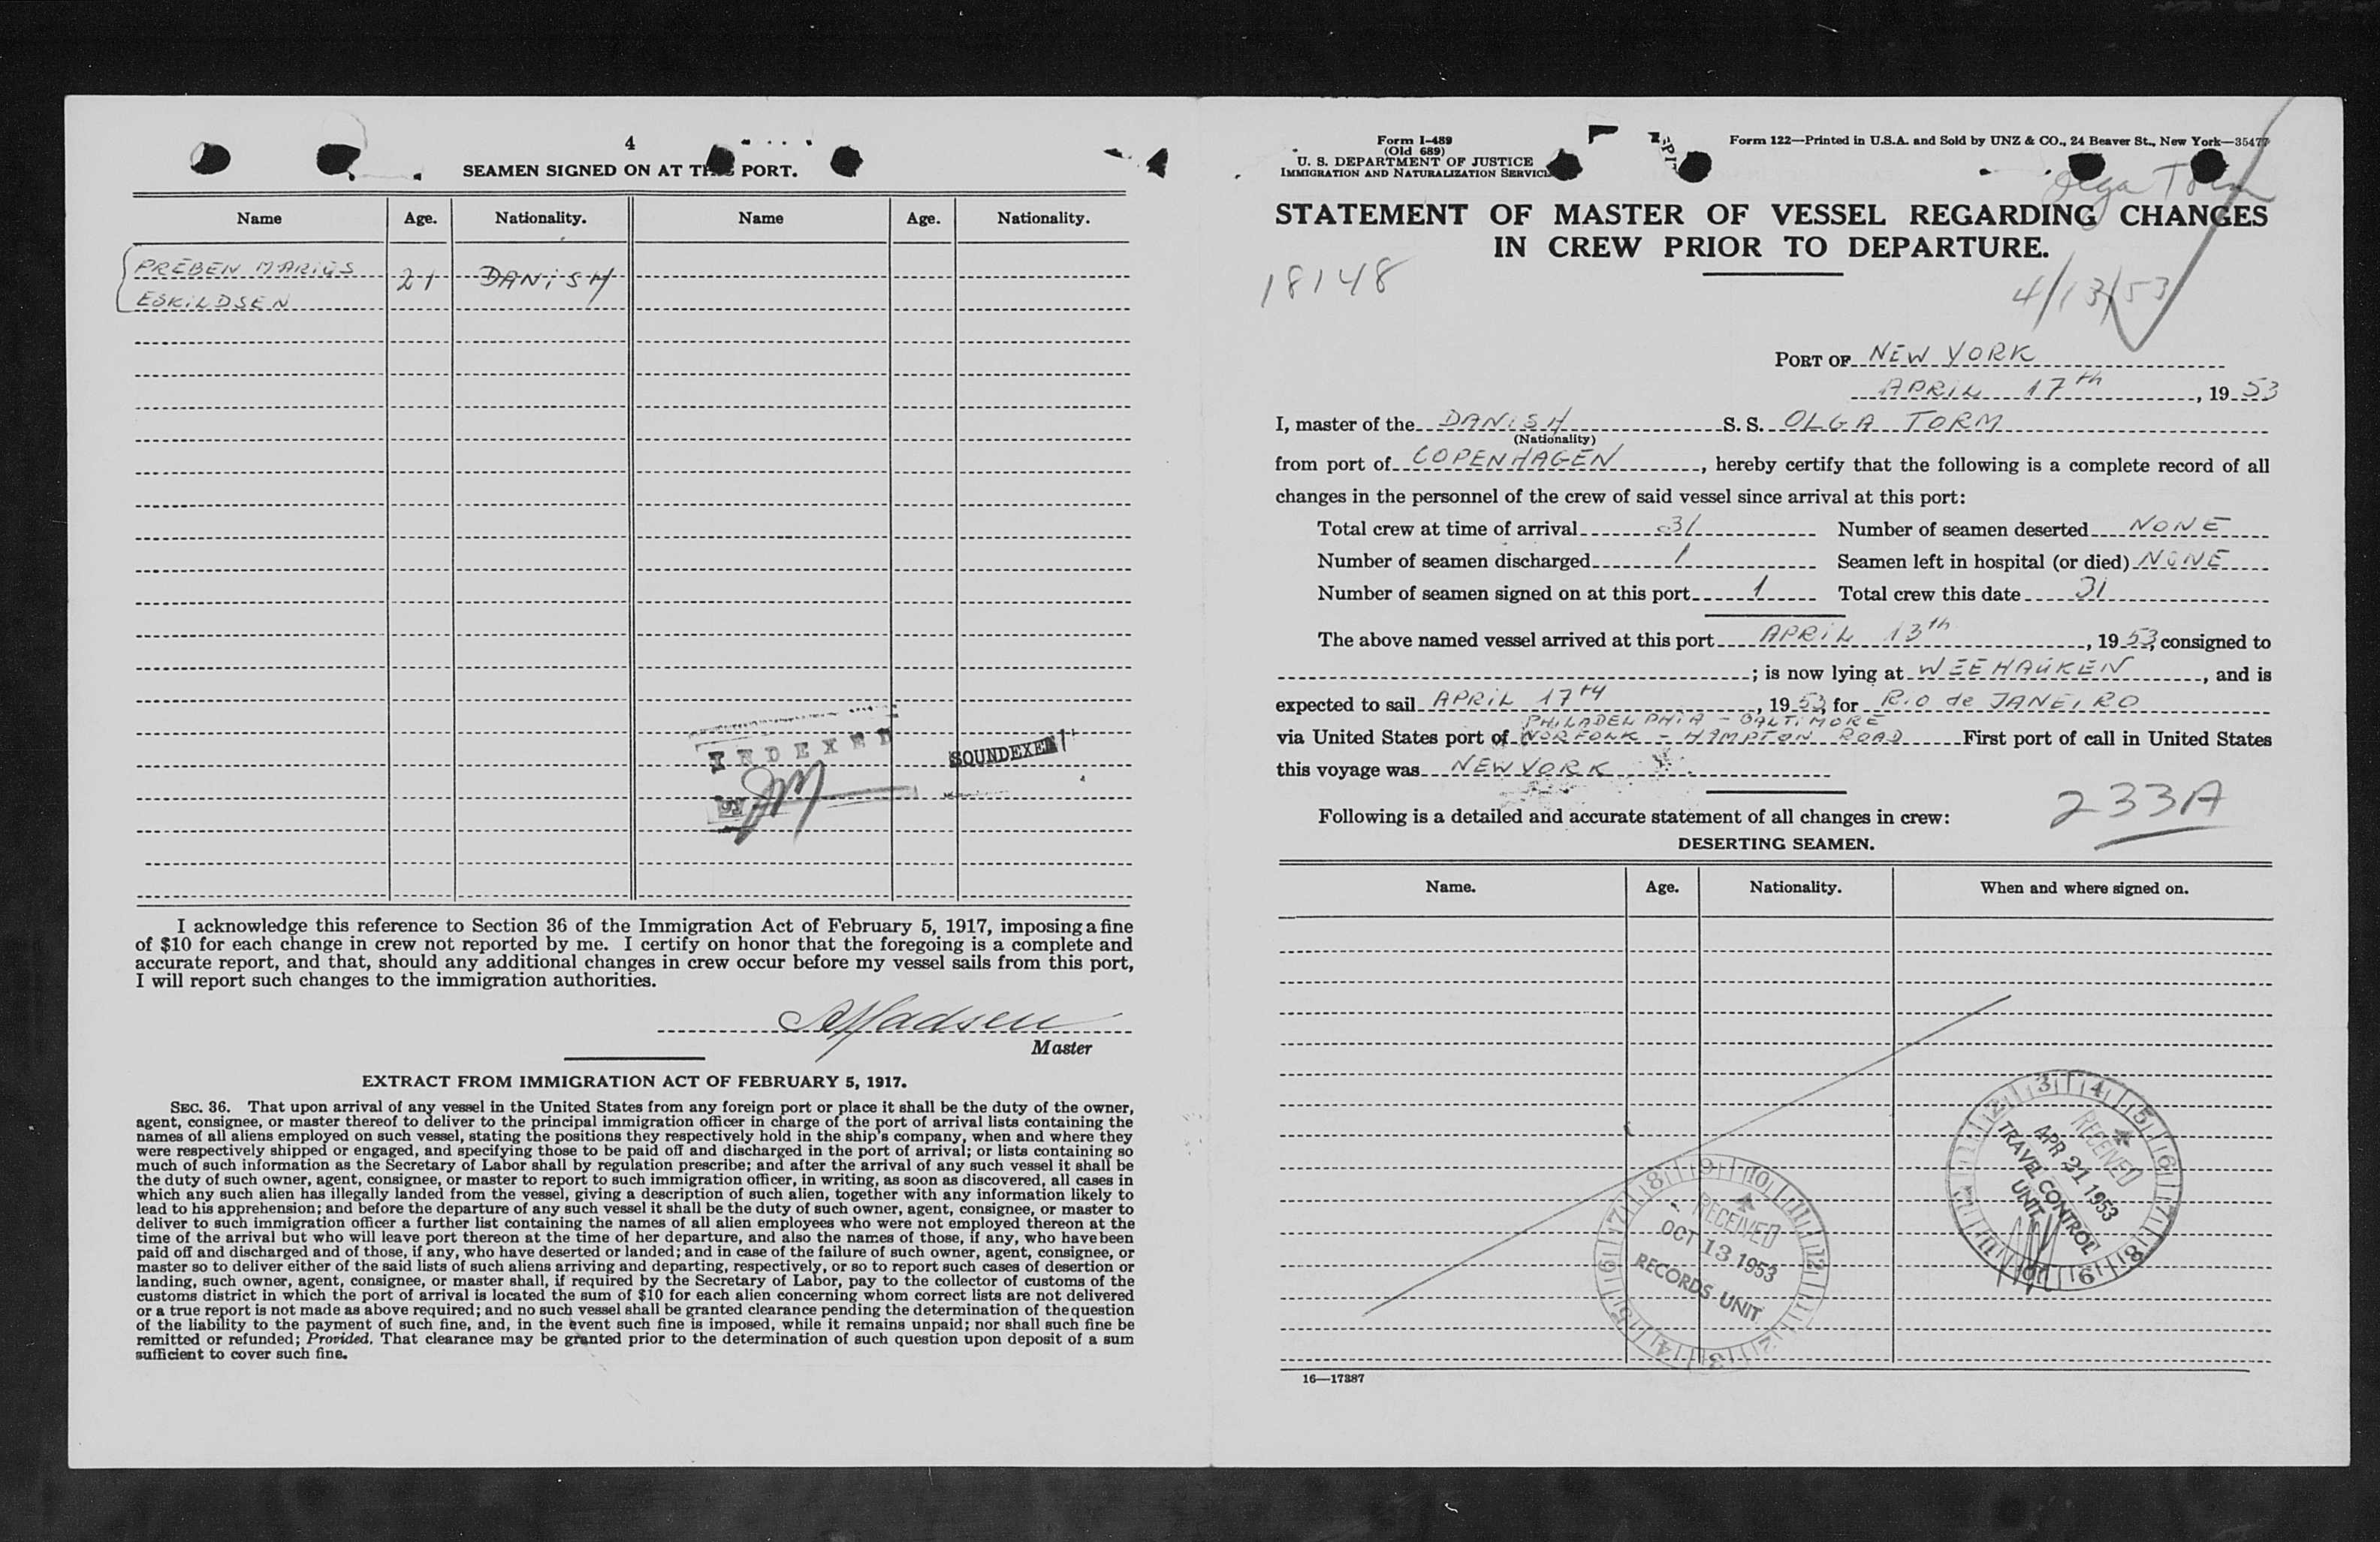 4
SEAMEN SIGNED ON AT THIS PORT.
Name Age. Nationality. Name Age. Nationality.
PREBEN MARIUS
ESKILDSEN 21 DANISH
INDEXED
SOUNDEXED
I acknowledge this reference to Section 36 of the Immigration Act of February 5, 1917, imposing a fine
of $10 for each change in crew not reported by me. I certify on honor that the foregoing is a complete and
accurate report, and that, should any additional changes in crew occur before my vessel sails from this port,
I will report such changes to the immigration authorities.
Madsen
Master
EXTRACT FROM IMMIGRATION ACT OF FEBRUARY 5, 1917.
SEC. 36. That upon arrival of any vessel in the United States from any foreign port or place it shall be the duty of the owner,
agent, consignee, or master thereof to deliver to the principal immigration officer in charge of the port of arrival lists containing the
names of all aliens employed on such vessel, stating the positions they respectively hold in the ship's company, when and where they
were respectively shipped or engaged, and specifying those to be paid off and discharged in the port of arrival; or lists containing so
much of such information as the Secretary of Labor shall by regulation prescribe; and after the arrival of any such vessel it shall be
the duty of such owner, agent, consignee, or master to report to such immigration officer, in writing, as soon as discovered, all cases in
which any such alien has illegally landed from the vessel, giving a description of such alien, together with any information likely to
lead to his apprehension; and before the departure of any such vessel it shall be the duty of such owner, agent, consignee, or master to
deliver to such immigration officer a further list containing the names of all alien employees who were not employed thereon at the
time of the arrival but who will leave port thereon at the time of her departure, and also the names of those, if any, who have been
paid off and discharged and of those, if any, who have deserted or landed; and in case of the failure of such owner, agent, consignee, or
master so to deliver either of the said lists of such aliens arriving and departing, respectively, or so to report such cases of desertion or
landing, such owner, agent, consignee, or master shall, if required by the Secretary of Labor, pay to the collector of customs of the
customs district in which the port of arrival is located the sum of $10 for each alien concerning whom correct lists are not delivered
or a true report is not made as above required; and no such vessel shall be granted clearance pending the determination of the question
of the liability to the payment of such fine, and, in the event such fine is imposed, while it remains unpaid; nor shall such fine be
remitted or refunded; Provided. That clearance may be granted prior to the determination of such question upon deposit of a sum
sufficient to cover such fine.
Form I-489
(Old 689)
U. S. DEPARTMENT OF JUSTICE
IMMIGRATION AND NATURALIZATION SERVICE
Form 122—Printed in U.S.A. and Sold by UNZ & CO., 24 Beaver St., New York—35477
Olga Torm
STATEMENT OF MASTER OF VESSEL REGARDING CHANGES
IN CREW PRIOR TO DEPARTURE.
18148
4/13/53
PORT OF NEW YORK
APRIL 17th, 1953
I, master of the DANISH S. S. OLGA TORM
(Nationality)
from port of COPENHAGEN, hereby certify that the following is a complete record of all
changes in the personnel of the crew of said vessel since arrival at this port:
Total crew at time of arrival 31 Number of seamen deserted NONE
Number of seamen discharged 1 Seamen left in hospital (or died) NONE
Number of seamen signed on at this port 1 Total crew this date 31
The above named vessel arrived at this port APRIL 13th, 1953, consigned to
; is now lying at WEEHAUKEN, and is
expected to sail APRIL 17th, 1953, for RIO de JANEIRO
PHILADELPHIA - BALTIMORE
via United States port of NORFOLK - HAMPTON ROAD First port of call in United States
this voyage was NEW YORK
233A
Following is a detailed and accurate statement of all changes in crew:
DESERTING SEAMEN.
Name. Age. Nationality. When and where signed on.
RECEIVED
APR 21 1953
TRAVEL CONTROL
UNIT
RECEIVED
OCT 13 1953
RECORDS UNIT
16—17387